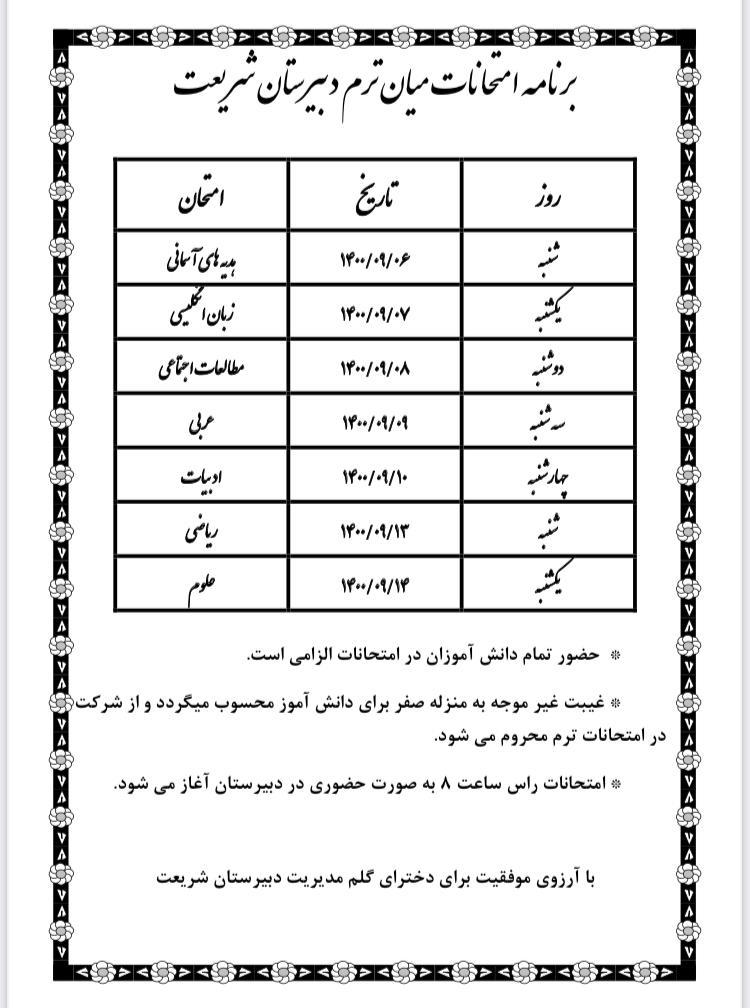 برنامه امتحانات میان ترم دبیرستان شریعت
روز تاریخ امتحان
شنبه ۱۴۰۰/۰۹/۰۶ هدیه های آسمانی
یکشنبه ۱۴۰۰/۰۹/۰۷ زبان انگلیسی
دوشنبه ۱۴۰۰/۰۹/۰۸ مطالعات اجتماعی
سه شنبه ۱۴۰۰/۰۹/۰۹ عربی
چهارشنبه ۱۴۰۰/۰۹/۱۰ ادبیات
شنبه ۱۴۰۰/۰۹/۱۳ ریاضی
یکشنبه ۱۴۰۰/۰۹/۱۴ علوم
❊ حضور تمام دانش آموزان در امتحانات الزامی است.
❊ غیبت غیر موجه به منزله صفر برای دانش آموز محسوب میگردد و از شرکت
در امتحانات ترم محروم می شود.
❊ امتحانات راس ساعت ۸ به صورت حضوری در دبیرستان آغاز می شود.
با آرزوی موفقیت برای دخترای گلم مدیریت دبیرستان شریعت